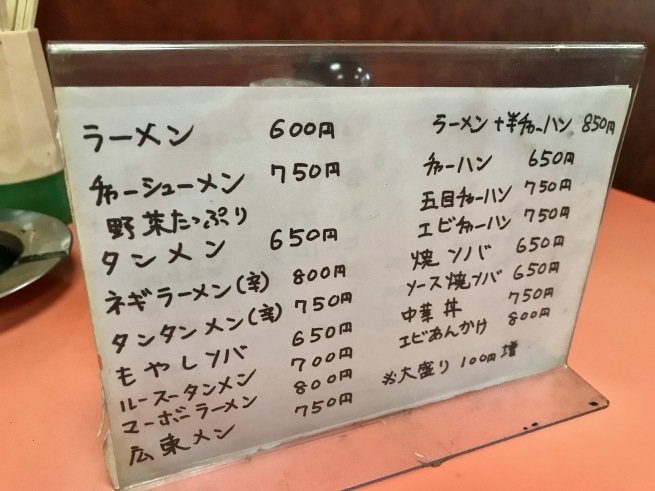 ラーメン 600円
チャーシューメン 750円
野菜たっぷり
タンメン 650円
ネギラーメン(辛) 800円
タンタンメン(辛) 750円
もやしソバ 650円
ルースータンメン 700円
マーボーラーメン 800円
広東メン 750円
ラーメン+半チャーハン 850円
チャーハン 650円
五目チャーハン 750円
エビチャーハン 750円
焼ソバ 650円
ソース焼ソバ 650円
中華丼 750円
エビあんかけ 800円
※大盛り 100円増